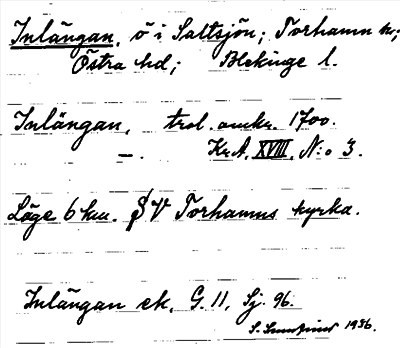 Inlängan, ö i Saltsjön; Torhamn sn;
Östra hd; Blekinge l.
Inlängan, trol. omkr. 1700.
—. Kr.A. XVIII. N:o 3.
Läge 6 km. SV Torhamns kyrka.
Inlängan ek. G. 11, Sj. 96.
S. 1936.